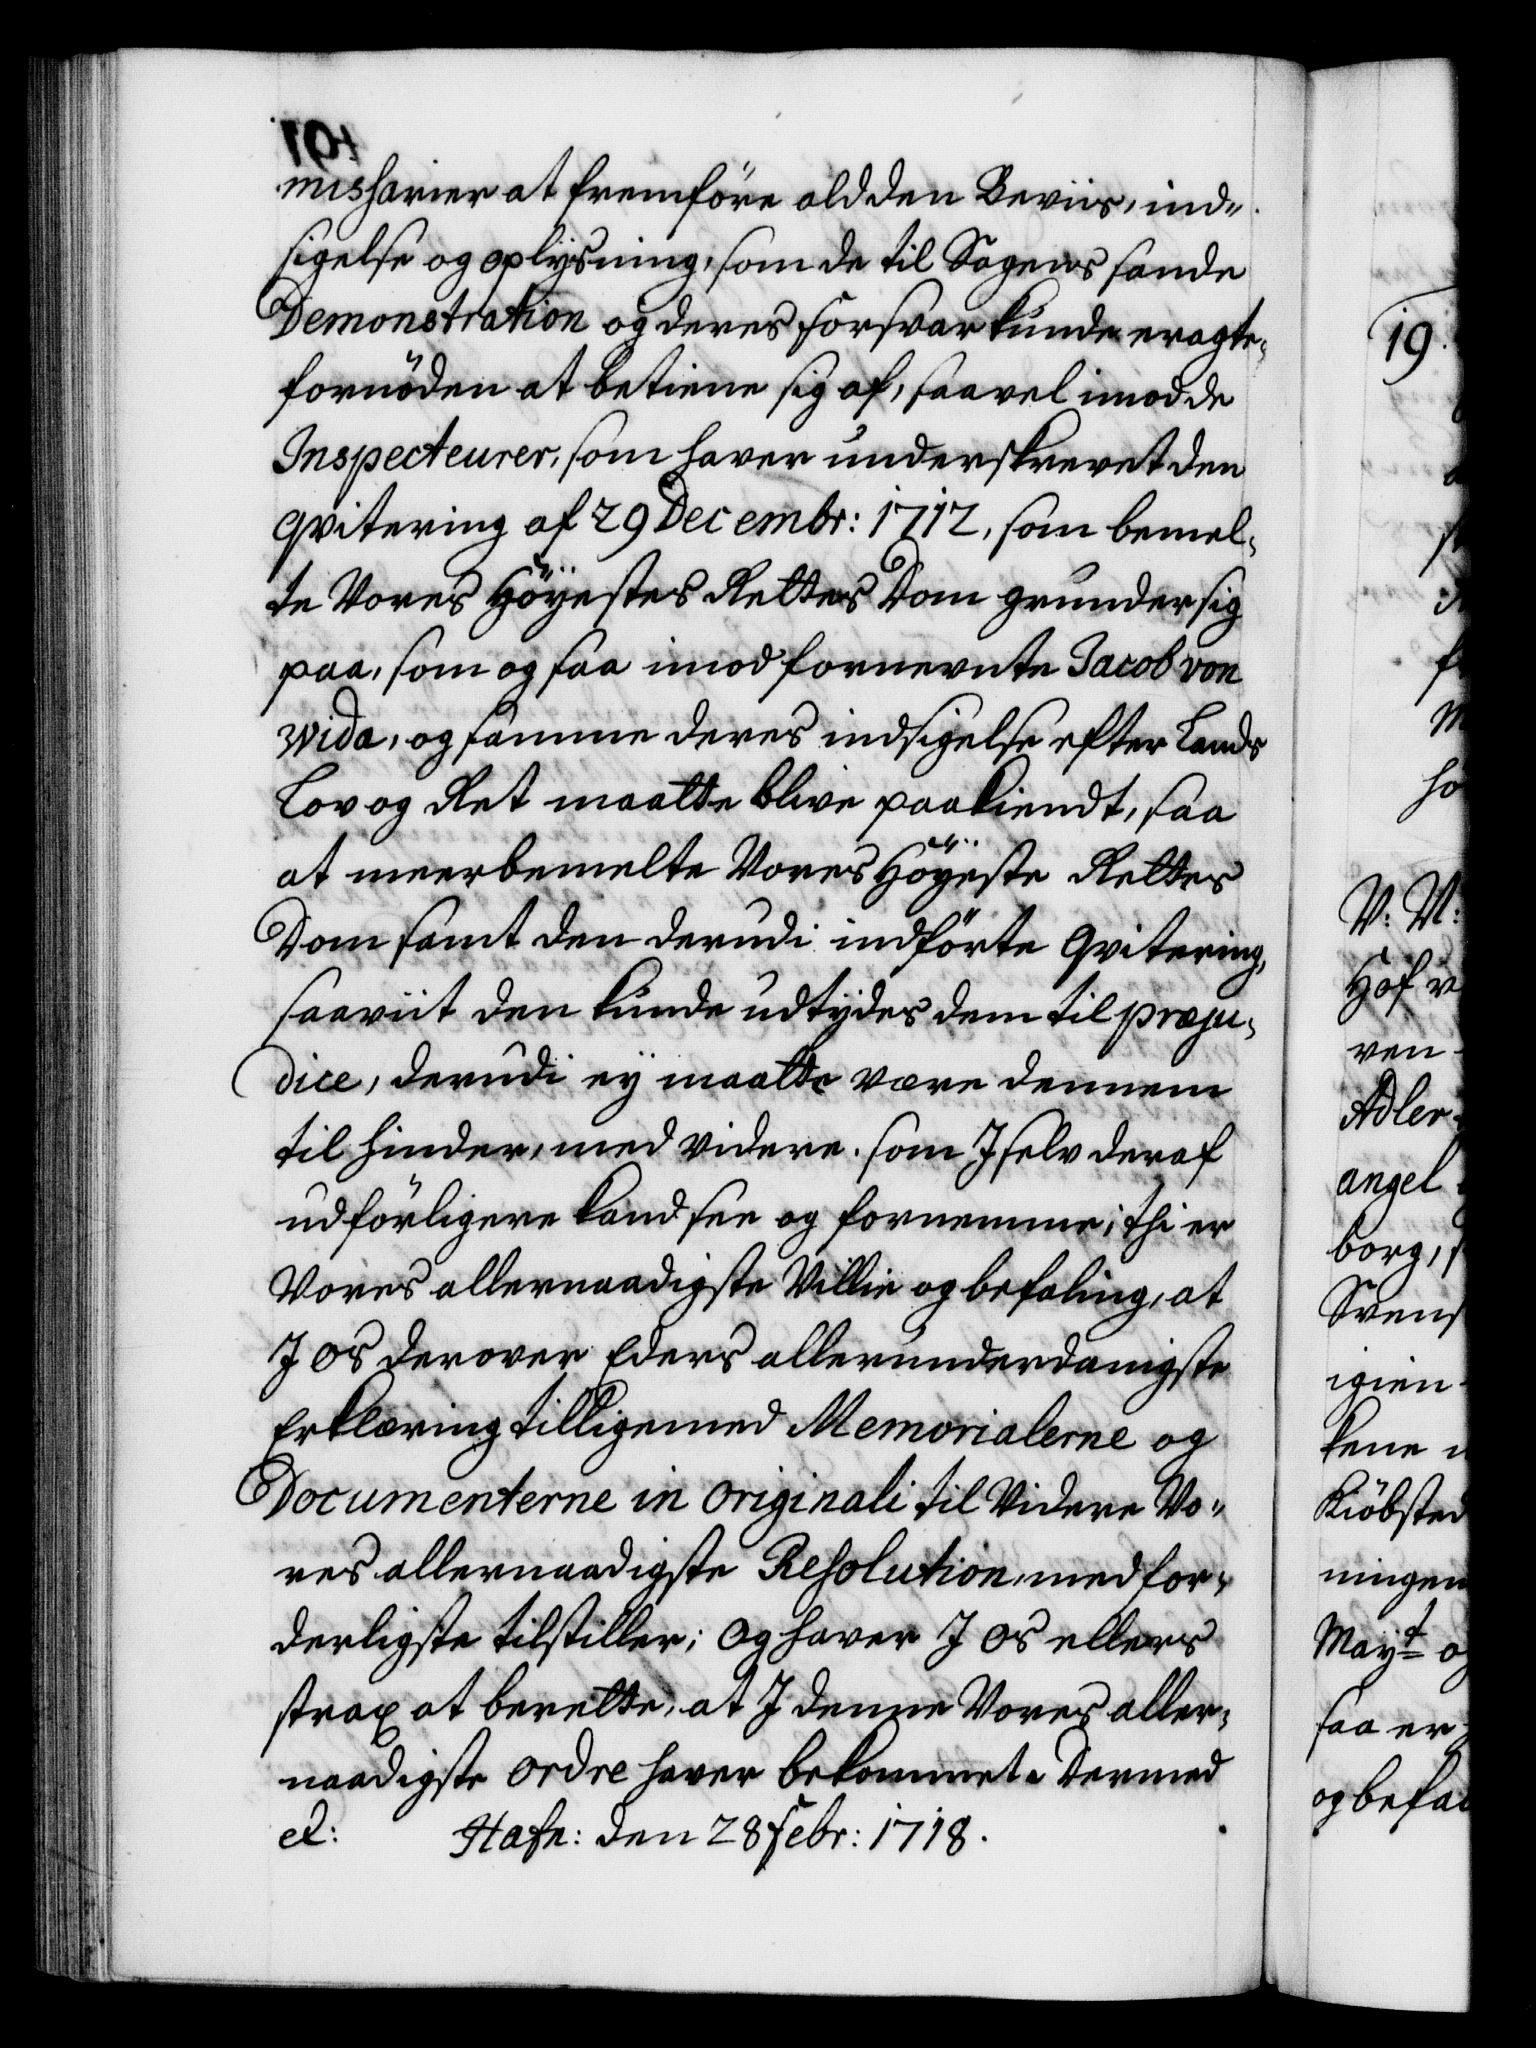 misharier at fremföre ald den Beviis, ind-
sigelse og oplysning, som de til Sagens sande
Demonstration og deres forsvar kunde eragte
fornöden at betiene sig af, saavel imod de
Inspecteurer, som haver underskrevet den
qvitering af 29 Decembr: 1712, som bemel-
te Vores Höyestes Rettes Dom grunder sig
paa, som og saa imod fornevnte Jacob von
Wida, og samme deres indsigelse efter Lands
Lov og Ret maatte blive paakiendt, saa
at meerbemelte Vores Höyeste Rettes
Dom samt den derudi indförte Qvitering,
saaviit den kunde udtydes dem til præju-
dice, derudi ey maatte være dennem
til hinder, med videre. som J selv deraf
udförligere kand see og fornemme; thi er
Vores allernaadigste Villie og befaling, at
J os derover Eders allerunderdanigste
Erklæring tilligemed Memorialerne og
Documenterne in originali til Videre Vo-
res allernaadigste Resolution, med for-
derligste tilstiller; og haver J os ellers
strax at berette, at J denne Vores aller-
naadigste ordre haver bekommet. Dermed
el: Hafn: den 28 Febr: 1718.
19.
V: M:
Hof
ven
Adler
angel
borg,
Svens
igien
kene
Kiöbsted
ningen
Mayt
saa er
og befal